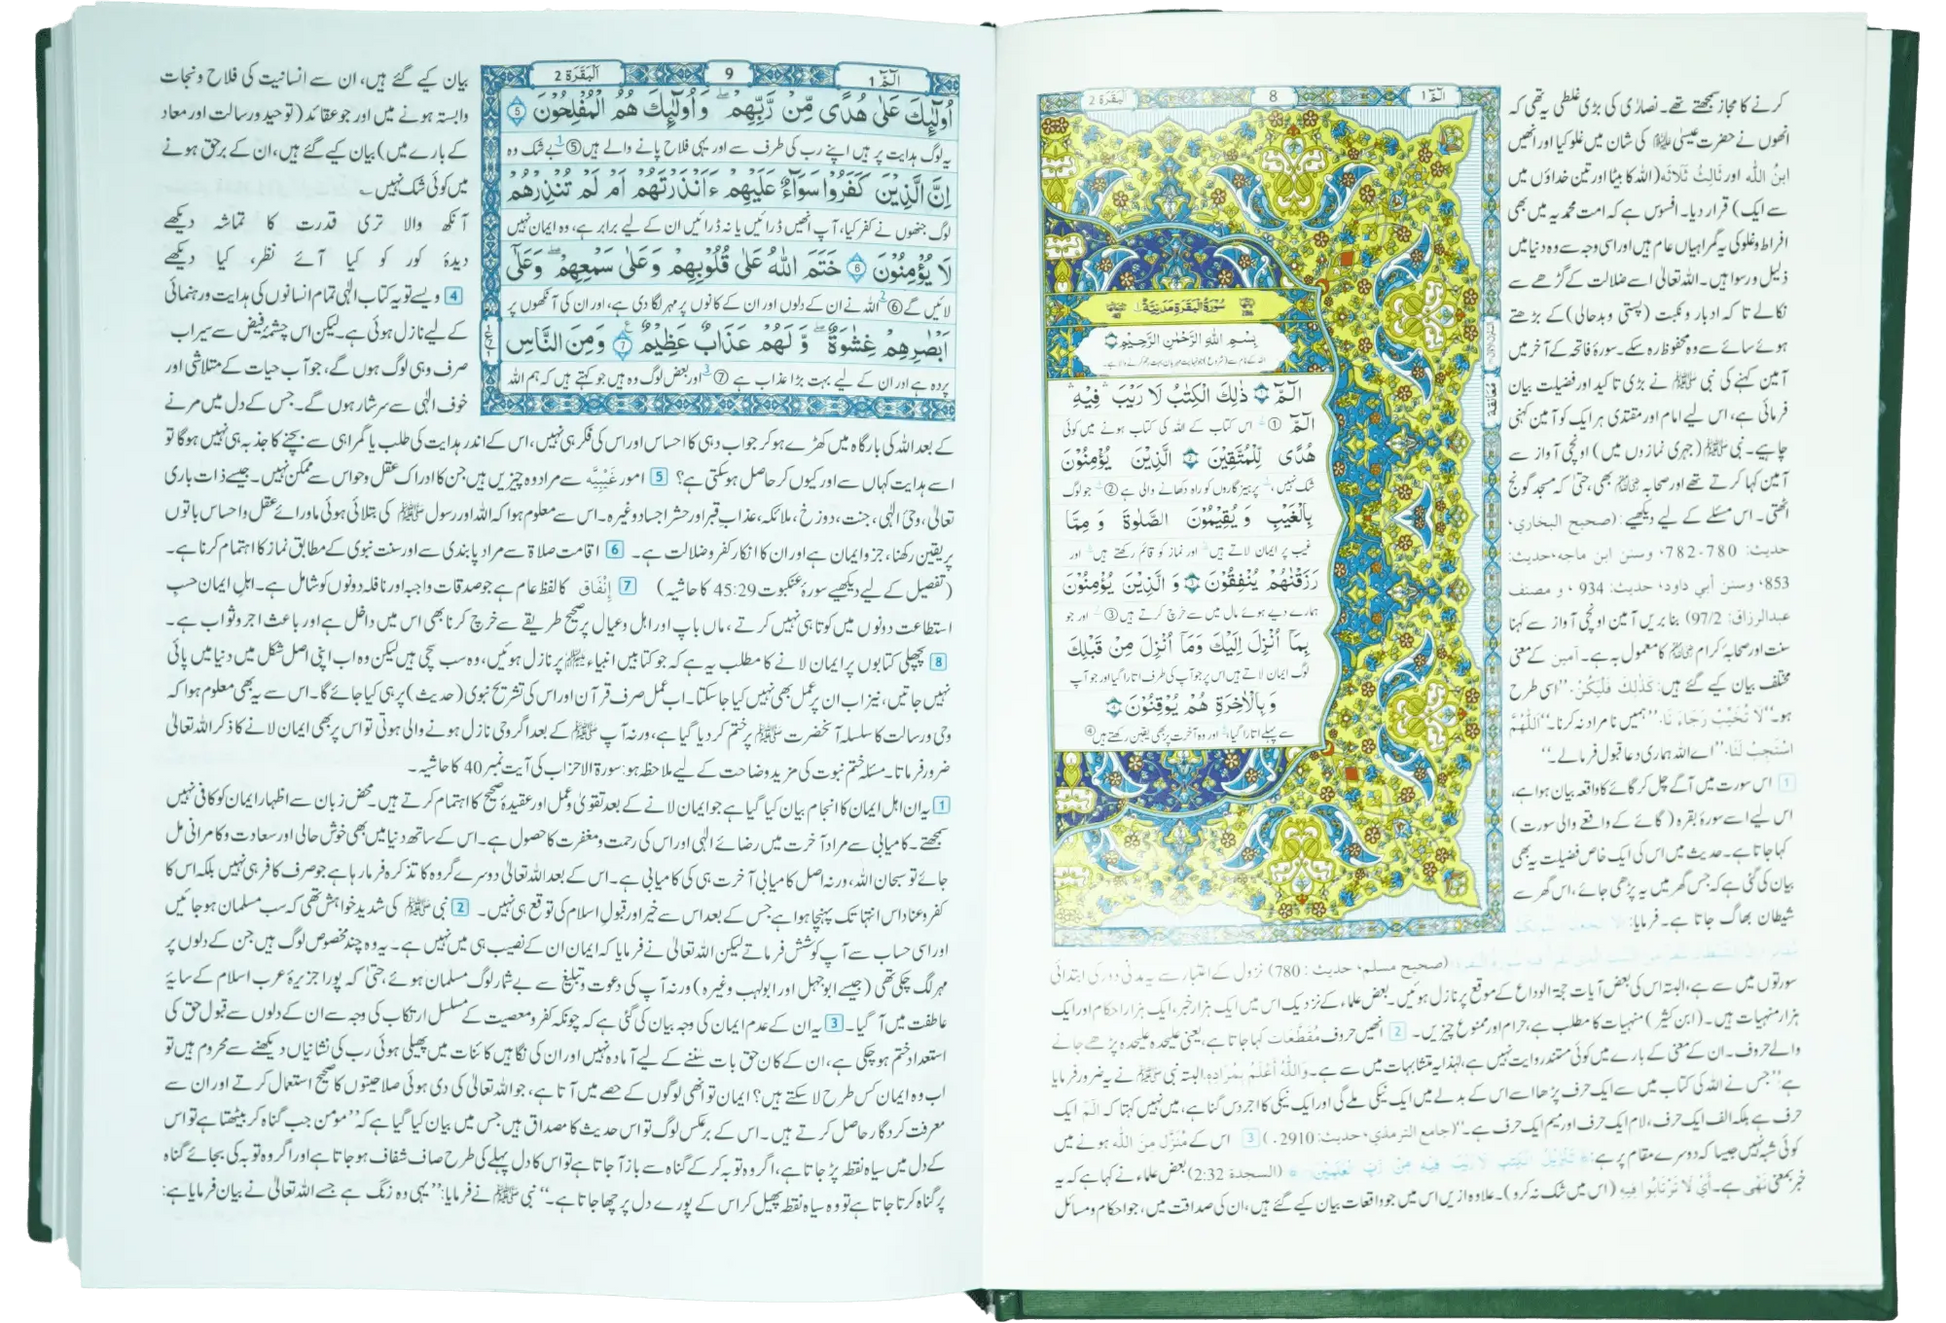 البقرة 2
8
الٓمّٓ 1
کرنے کا مجاز سمجھتے تھے۔ نصارٰی کی بڑی غلطی یہ تھی کہ
انھوں نے حضرت عیسیٰ علیہ السلام کی شان میں غلو کیا اور انھیں
ابنُ اللّٰه اور ثَالِثُ ثَلَاثَه (اللہ کا بیٹا اور تین خداؤں میں
سے ایک) قرار دیا۔ افسوس ہے کہ امت محمدیہ میں بھی
افراط و غلو کی یہ گمراہیاں عام ہیں اور اسی وجہ سے وہ دنیا میں
ذلیل و رسوا ہیں۔ اللہ تعالیٰ اسے ضلالت کے گڑھے سے
نکالے تا کہ ادبار و نکبت (پستی و بدحالی) کے بڑھتے
ہوئے سائے سے وہ محفوظ رہ سکے۔ سورۂ فاتحہ کے آخر میں
آمین کہنے کی نبی ﷺ نے بڑی تاکید اور فضیلت بیان
فرمائی ہے، اس لیے امام اور مقتدی ہر ایک کو آمین کہنی
چاہیے۔ نبی ﷺ (جہری نمازوں میں) اونچی آواز سے
آمین کہا کرتے تھے اور صحابہ بھی، حتیٰ کہ مسجد گونج
اٹھتی۔ اس مسئلے کے لیے دیکھیے: (صحیح البخاري،
حدیث: 780-782، وسنن ابن ماجه، حدیث:
853، وسنن أبي داود، حدیث: 934، و مصنف
عبدالرزاق: 97/2) بنا بریں آمین اونچی آواز سے کہنا
سنت اور صحابۂ کرام کا معمول بہ ہے۔ آمین کے معنی
مختلف بیان کیے گئے ہیں: كَذٰلِكَ فَلْيَكُنْ، ’’اسی طرح
ہو۔‘‘ لَا تُخَيِّبْ رَجَاءَ نَا، ’’ہمیں نامراد نہ کرنا۔‘‘ اَللّٰهُمَّ
اسْتَجِبْ لَنَا، ’’اے اللہ ہماری دعا قبول فرما لے۔‘‘
1 اس سورت میں آگے چل کر گائے کا واقعہ بیان ہوا ہے،
اس لیے اسے سورۂ بقرہ (گائے کے واقعے والی سورت)
کہا جاتا ہے۔ حدیث میں اس کی ایک خاص فضیلت یہ بھی
بیان کی گئی ہے کہ جس گھر میں یہ پڑھی جائے، اس گھر سے
شیطان بھاگ جاتا ہے۔ فرمایا:
سُوْرَةُ الْبَقَرَةِ مَدَنِيَّةٌ
بِسْمِ اللّٰهِ الرَّحْمٰنِ الرَّحِيْمِ
الٓمّٓ ذٰلِكَ الْكِتٰبُ لَا رَيْبَ ۛ فِيْهِ ۛ
الٓمّٓ ① اس کتاب کے اللہ کی کتاب ہونے میں کوئی
هُدًى لِّلْمُتَّقِيْنَ الَّذِيْنَ يُؤْمِنُوْنَ
شک نہیں، پرہیزگاروں کو راہ دکھانے والی ہے ② جو لوگ
بِالْغَيْبِ وَ يُقِيْمُوْنَ الصَّلٰوةَ وَ مِمَّا
غیب پر ایمان لاتے ہیں اور نماز کو قائم رکھتے ہیں اور
رَزَقْنٰهُمْ يُنْفِقُوْنَ وَ الَّذِيْنَ يُؤْمِنُوْنَ
ہمارے دیے ہوئے مال میں سے خرچ کرتے ہیں ③ اور جو
بِمَآ اُنْزِلَ اِلَيْكَ وَمَآ اُنْزِلَ مِنْ قَبْلِكَ
لوگ ایمان لاتے ہیں اس پر جو آپ کی طرف اتارا گیا اور جو آپ
وَ بِالْاٰخِرَةِ هُمْ يُوْقِنُوْنَ
سے پہلے اتارا گیا، اور وہ آخرت پر بھی یقین رکھتے ہیں ④
مُعَانَقَة
(صحیح مسلم، حدیث: 780) نزول کے اعتبار سے یہ مدنی دور کی ابتدائی
سورتوں میں سے ہے، البتہ اس کی بعض آیات حجۃ الوداع کے موقع پر نازل ہوئیں۔ بعض علماء کے نزدیک اس میں ایک ہزار خبر، ایک ہزار احکام اور ایک
ہزار منہیات ہیں۔ (ابن کثیر) منہیات کا مطلب ہے، حرام اور ممنوع چیزیں۔ 2 انھیں حروف مُقَطَّعَات کہا جاتا ہے، یعنی علیحدہ علیحدہ پڑھے جانے
والے حروف۔ ان کے معنی کے بارے میں کوئی مستند روایت نہیں ہے، لہٰذا یہ متشابہات میں سے ہے۔ وَاللّٰهُ أَعْلَمُ بِمُرَادِهِ۔ البتہ نبی ﷺ نے یہ ضرور فرمایا
ہے ’’جس نے اللہ کی کتاب میں سے ایک حرف پڑھا اسے اس کے بدلے میں ایک نیکی ملے گی اور ایک نیکی کا اجر دس گنا ہے، میں نہیں کہتا کہ الٓمّ ایک
حرف ہے بلکہ الف ایک حرف، لام ایک حرف اور میم ایک حرف ہے۔‘‘ (جامع الترمذي، حدیث: 2910۔) 3 اس کے مُنَزَّل مِنَ اللّٰه ہونے میں
کوئی شبہ نہیں جیسا کہ دوسرے مقام پر ہے: ﴿تَنْزِيْلُ الْكِتٰبِ لَا رَيْبَ فِيْهِ مِنْ رَّبِّ الْعٰلَمِيْنَ﴾ (السجدة 2:32) بعض علماء نے کہا ہے کہ یہ
خبر بمعنی نَھْی ہے۔ أَيْ لَا تَرْتَابُوا فِيْهِ (اس میں شک نہ کرو)۔ علاوہ ازیں اس میں جو واقعات بیان کیے گئے ہیں، ان کی صداقت میں، جو احکام و مسائل
البقرة 2
9
الٓمّٓ 1
بیان کیے گئے ہیں، ان سے انسانیت کی فلاح و نجات
وابستہ ہونے میں اور جو عقائد (توحید و رسالت اور معاد
کے بارے میں) بیان کیے گئے ہیں، ان کے برحق ہونے
میں کوئی شک نہیں۔
آنکھ والا تری قدرت کا تماشہ دیکھے
دیدۂ کور کو کیا آئے نظر، کیا دیکھے
4 ویسے تو یہ کتاب الٰہی تمام انسانوں کی ہدایت و رہنمائی
کے لیے نازل ہوئی ہے۔ لیکن اس چشمۂ فیض سے سیراب
صرف وہی لوگ ہوں گے، جو آب حیات کے متلاشی اور
خوف الٰہی سے سرشار ہوں گے۔ جس کے دل میں مرنے
اُولٰٓئِكَ عَلٰى هُدًى مِّنْ رَّبِّهِمْ ۖ وَاُولٰٓئِكَ هُمُ الْمُفْلِحُوْنَ 5
یہ لوگ ہدایت پر ہیں اپنے رب کی طرف سے اور یہی فلاح پانے والے ہیں⑤ بے شک وہ
اِنَّ الَّذِيْنَ كَفَرُوْا سَوَآءٌ عَلَيْهِمْ ءَاَنْذَرْتَهُمْ اَمْ لَمْ تُنْذِرْهُمْ
لوگ جنھوں نے کفر کیا، آپ انھیں ڈرائیں یا نہ ڈرائیں ان کے لیے برابر ہے، وہ ایمان نہیں
لَا يُؤْمِنُوْنَ 6 خَتَمَ اللّٰهُ عَلٰى قُلُوْبِهِمْ وَعَلٰى سَمْعِهِمْ ۖ وَعَلٰٓى
لائیں گے⑥ اللہ نے ان کے دلوں اور ان کے کانوں پر مہر لگا دی ہے، اور ان کی آنکھوں پر
اَبْصٰرِهِمْ غِشٰوَةٌ ۖ وَّ لَهُمْ عَذَابٌ عَظِيْمٌ 7 وَمِنَ النَّاسِ
پردہ ہے اور ان کے لیے بہت بڑا عذاب ہے ⑦ اور بعض لوگ وہ ہیں جو کہتے ہیں کہ ہم اللہ
کے بعد اللہ کی بارگاہ میں کھڑے ہو کر جواب دہی کا احساس اور اس کی فکر ہی نہیں، اس کے اندر ہدایت کی طلب یا گمراہی سے بچنے کا جذبہ ہی نہیں ہوگا تو
اسے ہدایت کہاں سے اور کیوں کر حاصل ہو سکتی ہے؟ 5 امور غَيْبِيَّه سے مراد وہ چیزیں ہیں جن کا ادراک عقل و حواس سے ممکن نہیں۔ جیسے ذات باری
تعالیٰ، وحیٔ الٰہی، جنت، دوزخ، ملائکہ، عذاب قبر اور حشر اجساد وغیرہ۔ اس سے معلوم ہوا کہ اللہ اور رسول ﷺ کی بتلائی ہوئی ماورائے عقل و احساس باتوں
پر یقین رکھنا، جزو ایمان ہے اور ان کا انکار کفر و ضلالت ہے۔ 6 اقامت صلاۃ سے مراد پابندی سے اور سنت نبوی کے مطابق نماز کا اہتمام کرنا ہے۔
(تفصیل کے لیے دیکھیے سورۂ عنکبوت 45:29 کا حاشیہ) 7 إِنْفَاق کا لفظ عام ہے جو صدقات واجبہ اور نافلہ دونوں کو شامل ہے۔ اہل ایمان حسب
استطاعت دونوں میں کوتاہی نہیں کرتے، ماں باپ اور اہل و عیال پر صحیح طریقے سے خرچ کرنا بھی اس میں داخل ہے اور باعث اجر و ثواب ہے۔
8 پچھلی کتابوں پر ایمان لانے کا مطلب یہ ہے کہ جو کتابیں انبیاء پر نازل ہوئیں، وہ سب سچی ہیں لیکن وہ اب اپنی اصل شکل میں دنیا میں پائی
نہیں جاتیں، نیز اب ان پر عمل بھی نہیں کیا جا سکتا۔ اب عمل صرف قرآن اور اس کی تشریح نبوی (حدیث) پر ہی کیا جائے گا۔ اس سے یہ بھی معلوم ہوا کہ
وحی و رسالت کا سلسلہ آنحضرت ﷺ پر ختم کر دیا گیا ہے، ورنہ آپ ﷺ کے بعد اگر وحی نازل ہونے والی ہوتی تو اس پر بھی ایمان لانے کا ذکر اللہ تعالیٰ
ضرور فرماتا۔ مسئلہ ختم نبوت کی مزید وضاحت کے لیے ملاحظہ ہو: سورۃ الاحزاب کی آیت نمبر 40 کا حاشیہ۔
1 یہ ان اہل ایمان کا انجام بیان کیا گیا ہے جو ایمان لانے کے بعد تقویٰ و عمل اور عقیدۂ صحیح کا اہتمام کرتے ہیں۔ محض زبان سے اظہار ایمان کو کافی نہیں
سمجھتے۔ کامیابی سے مراد آخرت میں رضائے الٰہی اور اس کی رحمت و مغفرت کا حصول ہے۔ اس کے ساتھ دنیا میں بھی خوش حالی اور سعادت و کامرانی مل
جائے تو سبحان اللہ، ورنہ اصل کامیابی آخرت ہی کی کامیابی ہے۔ اس کے بعد اللہ تعالیٰ دوسرے گروہ کا تذکرہ فرما رہا ہے جو صرف کافر ہی نہیں بلکہ اس کا
کفر و عناد اس انتہا تک پہنچا ہوا ہے جس کے بعد اس سے خیر اور قبول اسلام کی توقع ہی نہیں۔ 2 نبی ﷺ کی شدید خواہش تھی کہ سب مسلمان ہو جائیں
اور اسی حساب سے آپ کوشش فرماتے لیکن اللہ تعالیٰ نے فرمایا کہ ایمان ان کے نصیب ہی میں نہیں ہے۔ یہ وہ چند مخصوص لوگ ہیں جن کے دلوں پر
مہر لگ چکی تھی (جیسے ابوجہل اور ابولہب وغیرہ) ورنہ آپ کی دعوت و تبلیغ سے بے شمار لوگ مسلمان ہوئے، حتیٰ کہ پورا جزیرۂ عرب اسلام کے سایۂ
عاطفت میں آ گیا۔ 3 یہ ان کے عدم ایمان کی وجہ بیان کی گئی ہے کہ چونکہ کفر و معصیت کے مسلسل ارتکاب کی وجہ سے ان کے دلوں سے قبول حق کی
استعداد ختم ہو چکی ہے، ان کے کان حق بات سننے کے لیے آمادہ نہیں اور ان کی نگاہیں کائنات میں پھیلی ہوئی رب کی نشانیاں دیکھنے سے محروم ہیں تو
اب وہ ایمان کس طرح لا سکتے ہیں؟ ایمان تو انھی لوگوں کے حصے میں آتا ہے، جو اللہ تعالیٰ کی دی ہوئی صلاحیتوں کا صحیح استعمال کرتے اور ان سے
معرفت کردگار حاصل کرتے ہیں۔ اس کے برعکس لوگ تو اس حدیث کا مصداق ہیں جس میں بیان کیا گیا ہے کہ ’’مومن جب گناہ کر بیٹھتا ہے تو اس
کے دل میں سیاہ نقطہ پڑ جاتا ہے، اگر وہ توبہ کر کے گناہ سے باز آ جاتا ہے تو اس کا دل پہلے کی طرح صاف شفاف ہو جاتا ہے اور اگر وہ توبہ کی بجائے گناہ
پر گناہ کرتا جاتا ہے تو وہ سیاہ نقطہ پھیل کر اس کے پورے دل پر چھا جاتا ہے۔‘‘ نبی ﷺ نے فرمایا: ’’یہی وہ زنگ ہے جسے اللہ تعالیٰ نے بیان فرمایا ہے: